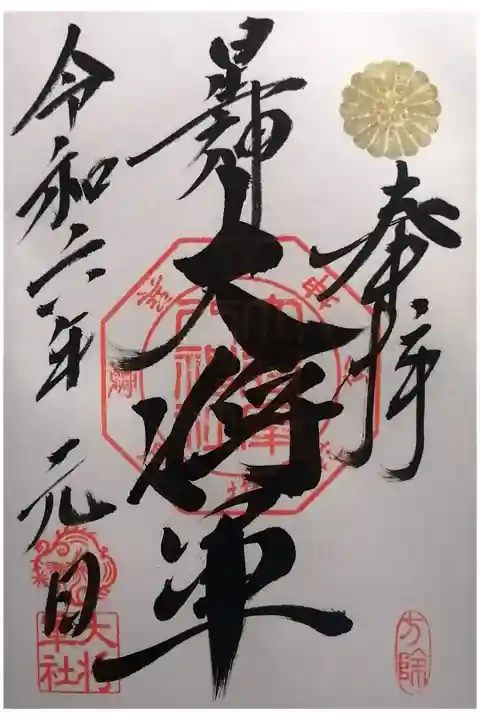 奉拝
方除
星神
大将軍
令和六年 元日
大将軍社